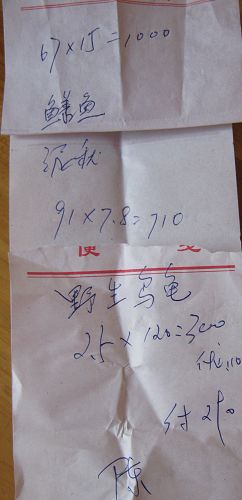 67×15=1000
鳝鱼
泥秋
91×7.8=710
便 笺
野生乌龟
2.5×120=300
付290
陈